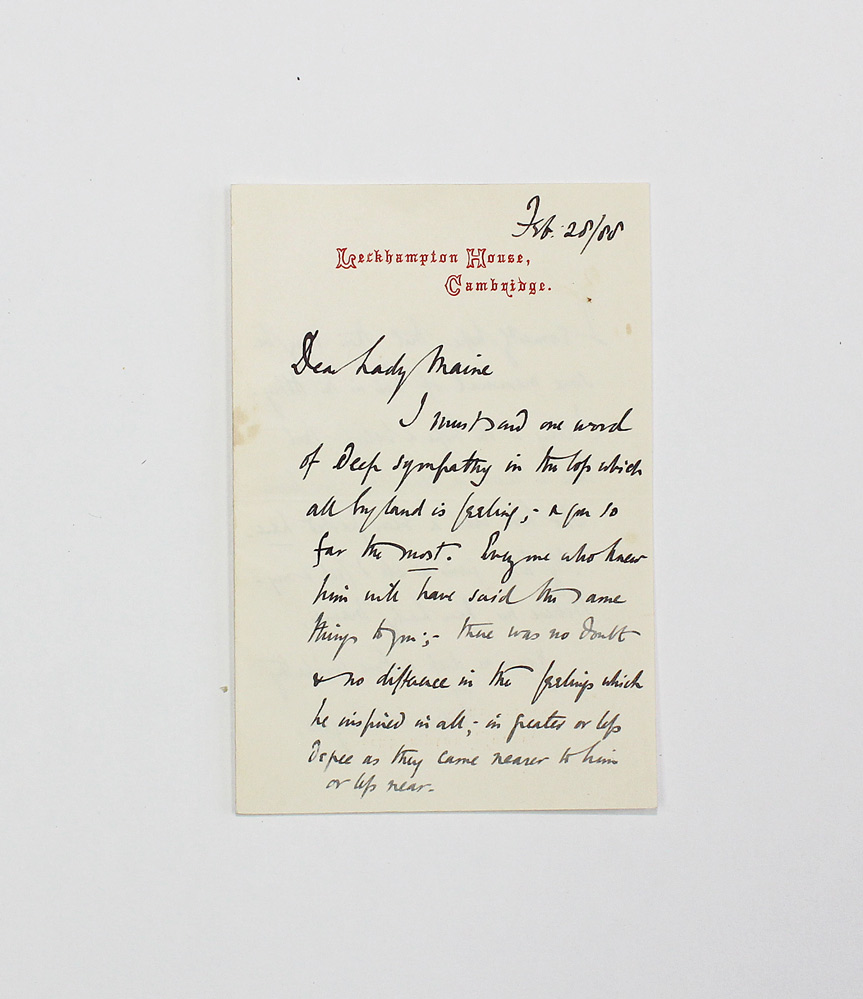 Feb. 28/88
Leckhampton House,
Cambridge.
Dear Lady Maine
I must send one word
of deep sympathy in the loss which
all England is feeling;- & you so
far the most. Every one who knew
him will have said the same
things to you;- there was no doubt
& no difference in the feelings which
he inspired in all;- in greater or less
degree as they came nearer to him
or less near.